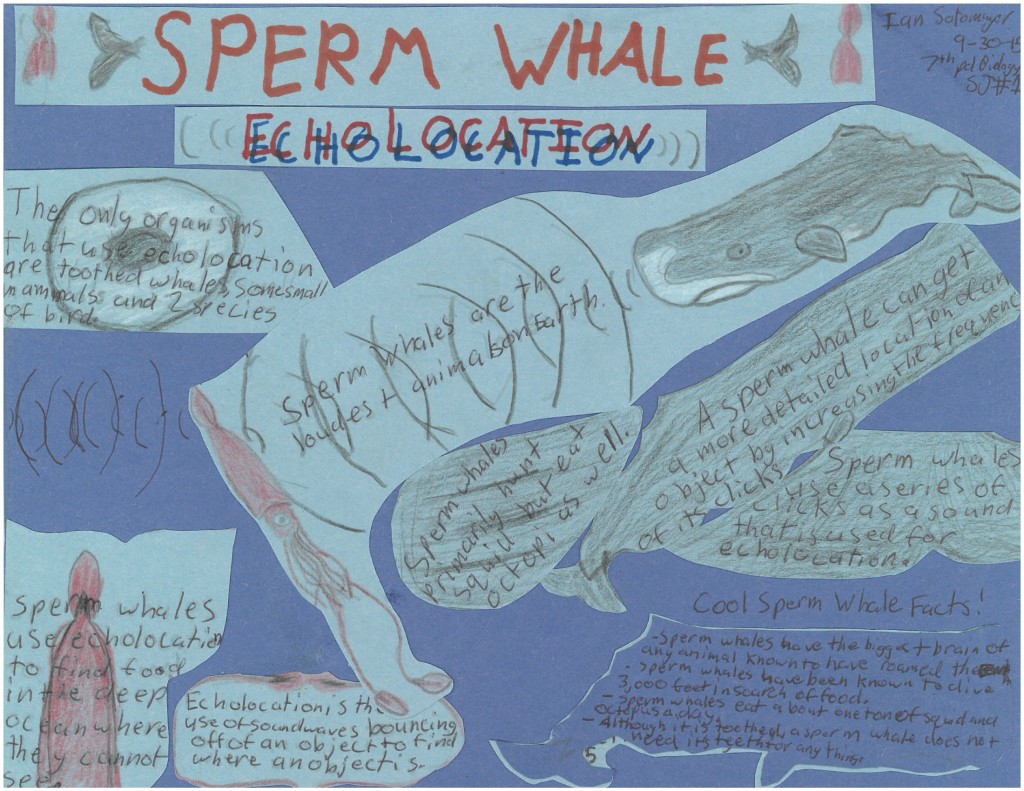 SPERM WHALE
Ian Sotomayor
9-30-15
7th pd Biology
SJ#1
ECHOLOCATION
The only organisms
that use echolocation
are toothed whales, some small
mammals and 2 species
of bird.
Sperm whales are the
loudest animals on Earth.
A sperm whale can get
a more detailed location of an
object by increasing the frequenc
of its clicks
Sperm whales
primarily hunt
squid but eat
octopi as well.
Sperm whales
use a series of
clicks as a sound
that is used for
echolocation.
Sperm whales
use echolocation
to find food
in the deep
ocean where
they cannot
see.
Echolocation is the
use of soundwaves bouncing
off of an object to find
where an object is.
Cool Sperm Whale Facts!
-Sperm whales have the biggest brain of
any animal known to have roamed the Earth
- Sperm whales have been known to dive
3,000 feet in search of food.
- Sperm whales eat about one ton of squid and
octopus a day.
- Although it is toothed, a sperm whale does not
need its teeth for anything.
5